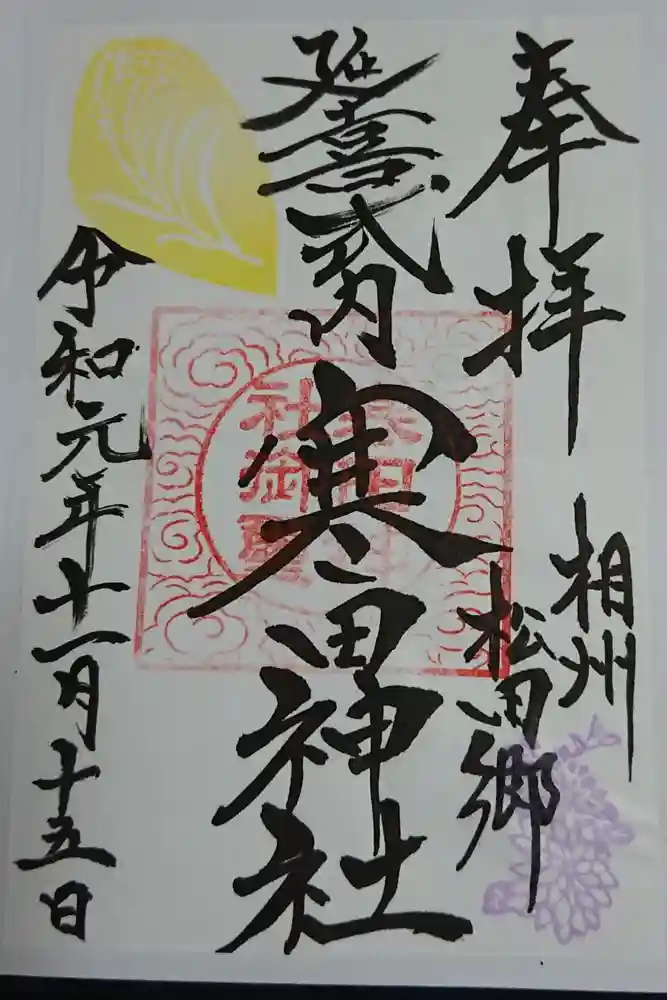 奉拝
相州
松田郷
延喜式内
寒田神社
令和元年十一月十五日